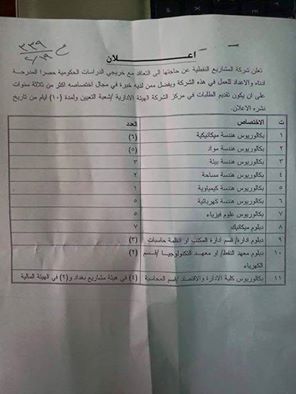 اعـــــلان
تعلن شركة المشاريع النفطية عن حاجتها الى التعاقد مع خريجي الدراسات الحكومية حصرا المدرجة
ادناه والاعداد للعمل في هذه الشركة ويفضل ممن لديه خبرة في مجال اختصاصه اكثر من ثلاثة سنوات
على ان يكون تقديم الطلبات في مركز الشركة الهيئة الادارية /شعبة التعيين ولمدة (١٠) ايام من تاريخ
نشره الاعلان.
ت الاختصاص العدد
١ بكالوريوس هندسة ميكانيكية (٦)
٢ بكالوريوس هندسة مواد (٥)
٣ بكالوريوس هندسة بيئة ٣
٤ بكالوريوس هندسة مساحة ٢
٥ بكالوريوس هندسة كيمياوية ١
٦ بكالوريوس هندسة كهربائية ٥
٧ بكالوريوس علوم فيزياء ٧
٨ دبلوم ميكانيك ٧
٩ دبلوم ادارة/ قسم ادارة المكتب او انظمة حاسبات (٣)
١٠ دبلوم معهد النفط/ او معهد التكنولوجيا /قسم (٢)
الكهرباء
١١ بكالوريوس كلية الادارة والاقتصاد /قسم المحاسبة (٤) في هيئة مشاريع بغداد و(٢) في الهيئة المالية